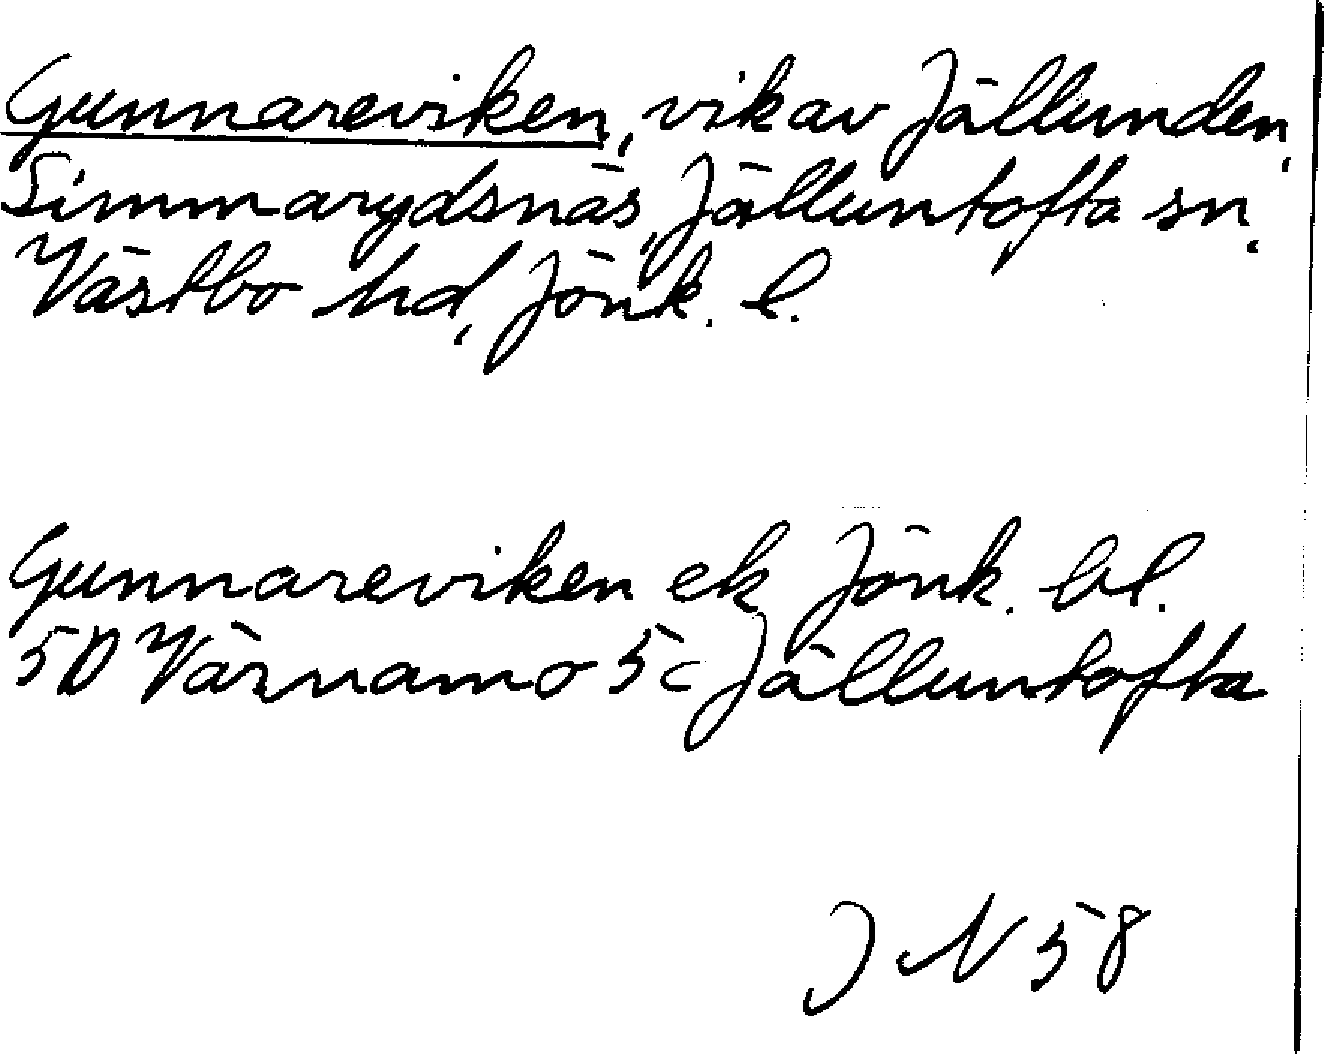 Gunnareviken, vik av Jällunden,
Simmarydsnäs, Jälluntofta sn,
Västbo hd, Jönk. l.
Gunnareviken ek Jönk. bl.
5D Värnamo 5c Jälluntofta
J N 58